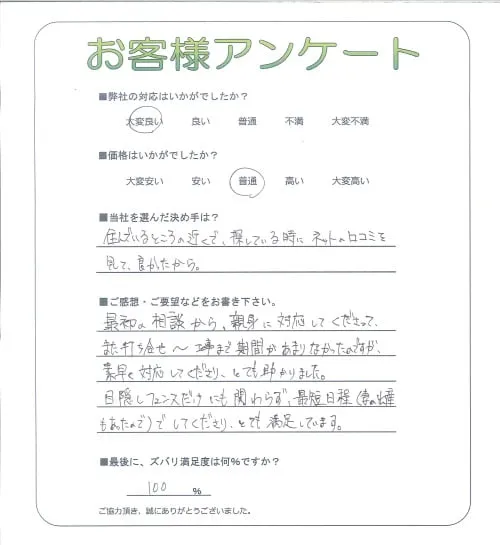 お客様アンケート
■弊社の対応はいかがでしたか？
大変良い 良い 普通 不満 大変不満
■価格はいかがでしたか？
大変安い 安い 普通 高い 大変高い
■当社を選んだ決め手は？
住んでいるところの近くで、探している時に ネットの口コミを
見て、良かったから。
■ご感想・ご要望などをお書き下さい。
最初の相談から、親身に対応してくださって、
また打ち合せ～工事まで期間があまりなかったのですが、
素早く対応してくださり、とても助かりました。
目隠しフェンスだけにも関わらず、最短日程(妻の出産
もあったので)でしてくださり、とても満足しています。
■最後に、ズバリ満足度は何％ですか？
100 ％
ご協力頂き、誠にありがとうございました。